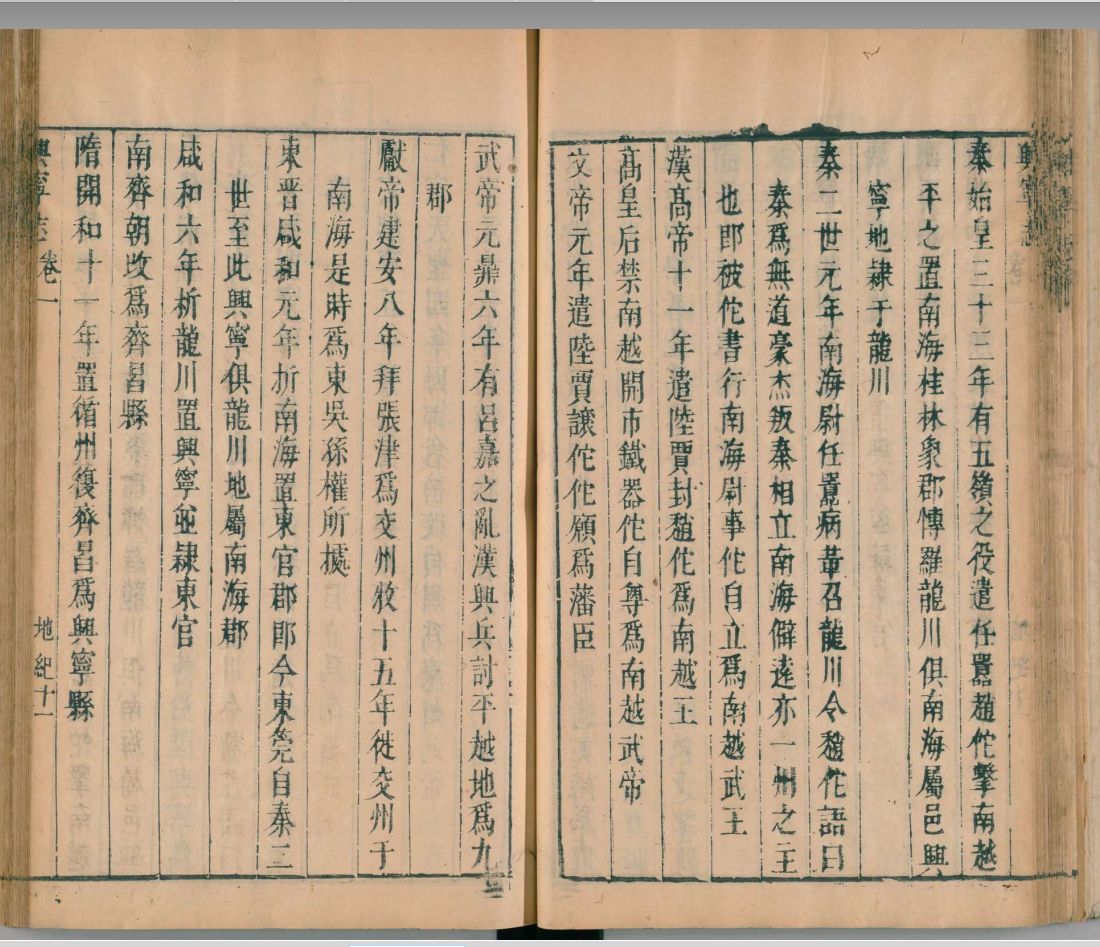 興寧志
秦始皇三十三年有五嶺之役遣任囂趙佗擊南越
平之置南海桂林象郡愽羅龍川俱南海屬邑興
寧地隷于龍川
秦二世元年南海尉任囂病革召龍川令趙佗語曰
秦爲無道豪杰叛秦相立南海僻逺亦一州之主
也即被佗書行南海尉事佗自立爲南越武王
漢髙帝十一年遣陸賈封趙佗爲南越王
髙皇后禁南越開市鐵器佗自尊爲南越武帝
文帝元年遣陸賈讓佗佗願爲藩臣
武帝元鼎六年有呂嘉之亂漢興兵討平越地爲九
郡
獻帝建安八年拜張津爲交州牧十五年徙交州于
南海是時爲東吳孫權所㨿
東晋咸和元年折南海置東官郡即今東筦自秦二
世至此興寧俱龍川地屬南海郡
咸和六年析龍川置興寧並隷東官
南齊朝改爲齊昌縣
隋開和十一年置循州復齊昌爲興寧縣
興寧志 卷一
地紀十一